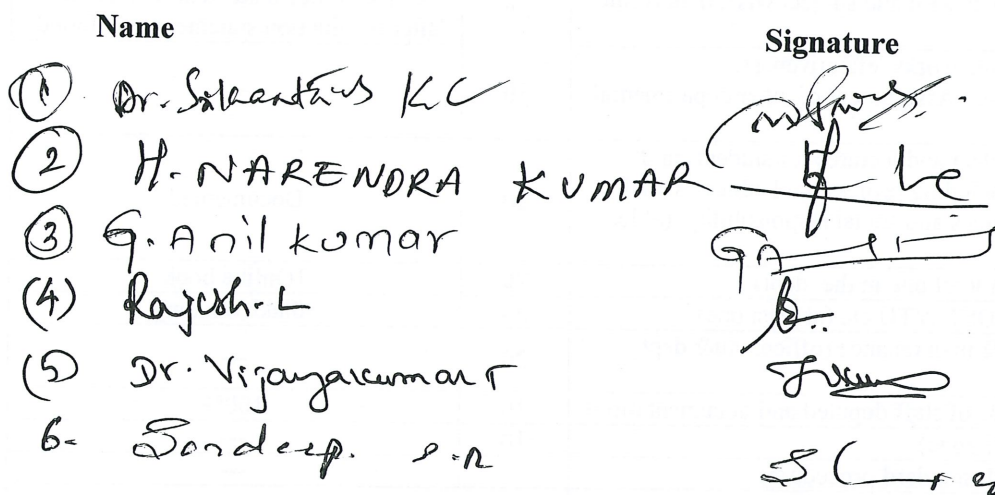 Name
Signature
1 Dr. Srikantaiah KC
2 H. NARENDRA KUMAR
3 G. Anil kumar
(4) Rajesh. L
(5) Dr. Vijayakumar T
6- Sandeep. S.R